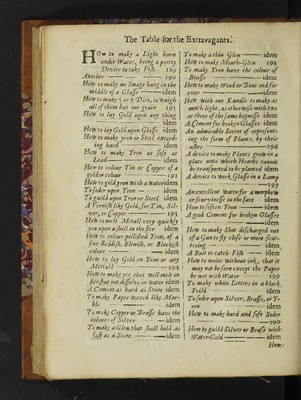 The Table for the Extravagants.
HOw to make a Light burn
under Water, being a pretty
Device to take Fish. 189
Another 190
How to make an Image hang in the
middle of a Glasse idem
How to make 5 or 6 Dice, to weigh
all of them but one grain 191
How to lay Gold upon any thing
idem
How to lay Gold upon Glasse idem
How to make yron or Steel exceed-
ing hard idem
How to make Yron as soft as
Lead idem
How to colour Tin or Copper of a
golden colour 192
How to gild yron with a water idem
To soder upon Yron idem
To guild upon Yron or Steel idem
A Vernish like Gold, for Tin, Sil-
ver, or Copper 193
How to melt Mettal very quickly
yea upon a shell in the fire idem
How to colour pollished Yron, of a
fine Reddish, Bleuish, or Blackish
colour idem
How to lay Gold on Yron or any
Mettall 194
How to make
idem
A Cement as hard as Stone idem
To make Paper waved like Mar-
ble idem
To make Copper or Brasse have the
colours of Silver idem
To make a Gleu that shall hold as
fast as a Stone idem
To make a thin Gleu idem
How to make Mouth-Gleu 195
To make Yron have the colour of
Brasse idem
How to make Wood or Bone red for
ever idem
How with one Kandle to make as
much light, as otherwise with two
or three of the same bignesse idem
A Cement for broken Glasses idem
An admirable Secret of represent-
ing the form of Plants, by their
ashes 196
A device to make Plants grow in a
place unto which Hearbs cannot
be transported to be planted idem
A device to work Glasse in a Lamp
197
An excellent water for a morphew
or scurvinesse in the face idem
How to soften Yron idem
A good Cement for broken Glasses
idem
How to make Shot discharged out
of a Gun to fly close or more scat-
tering idem
A Bait to catch Fish idem
How to write without ink, that it
may not be seen except the Paper
be wet with Water 199
To make white Letters in a black
Feild idem
To soder upon Silver, Brasse, or Y-
ron idem
How to make hard and soft Soder
200
How to guild Silver or Brasse with
Water-Gold idem
How